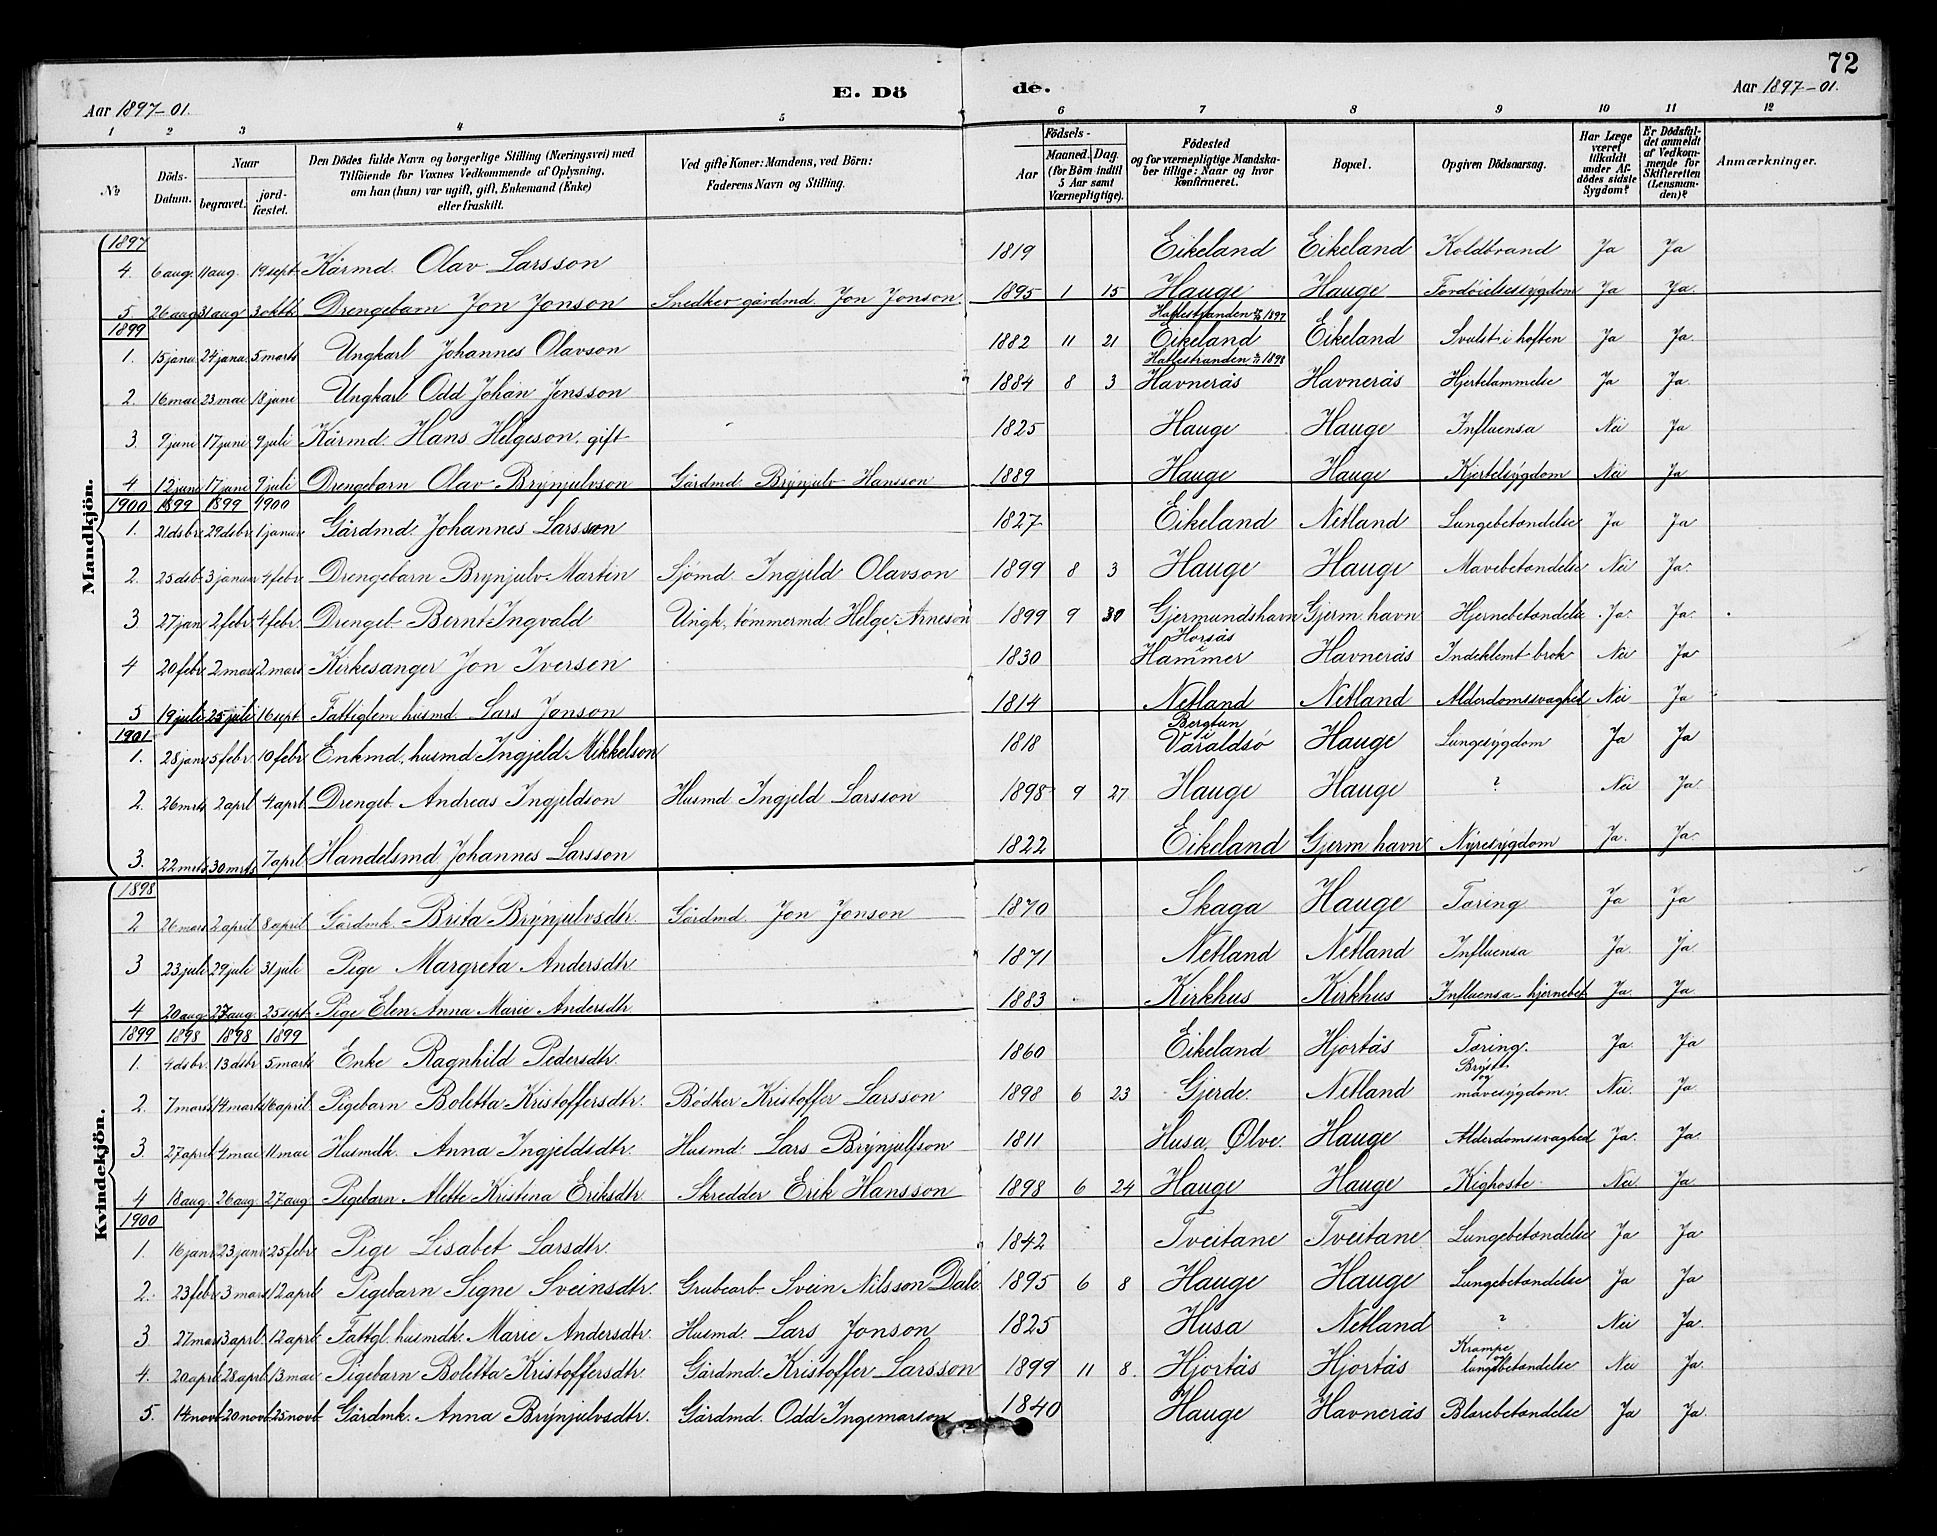 72
Aar 1897-01. E. Dö de. Aar 1897-01.
1 2 3 4 5 6 7 8 9 10 11 12
No Döds-Datum. Naar begravet. jordfæstet. Den Dödes fulde Navn og borgerlige Stilling (Næringsvei) med Tilföiende for Voxnes Vedkommende af Oplysning, om han (hun) var ugift, gift, Enkemand (Enke) eller fraskilt. Ved gifte Koner: Mandens, ved Börn: Faderens Navn og Stilling. Födsels- Aar Maaned. Dag. (for Börn indtil 5 Aar samt Værnepligtige). Födested og for værnepligtige Mandskaber tillige: Naar og hvor konfirmeret. Bopæl. Opgiven Dödsaarsag. Har Læge været tilkaldt under Afdödes sidste Sygdom? Er Dödsfaldet anmeldt af Vedkommende for Skifteretten (Lensmanden)? Anmærkninger.
Mandkjön.
1897
4. 6 aug. 11 aug. 19 sept. Kårmd. Olav Larsson 1819 Eikeland Eikeland Koldbrand Ja Ja
5 26 aug 31 aug 3 oktb. Drengebarn Jon Jonson Snedker gårdmd. Jon Jonson. 1895 1 15 Hauge Hauge Fordöielsessygdom Ja Ja.
1899
Hatlestranden 1897
1. 15 janu 24 janu. 5 marts Ungkarl Johannes Olavson 1882 11 21 Eikeland Eikeland Svulst i hoften Ja Ja.
Hatlestranden 1898
2. 16 mai 23 mai 18 juni Ungkarl Odd Johan Jensson 1884 8 3 Havnerås Havnerås Hjertelammelse Ja Ja.
3. 9 juni 17 juni 9 juli Kårmd. Hans Helgeson. gift 1825 Hauge Hauge Influensa Nei Ja
4 12 juni 17 juni 9 juli Drengebarn Olav Brynjulvson Gårdmd Brynjulv Hansson 1889 Hauge Hauge Kjertelsygdom Nei Ja
1900 1899 1899 1900
1. 21 dsbr. 29 dsbr. 1 januar Gårdmd. Johannes Larsson 1827 Eikeland Netland Lungebetændelse Ja Ja
2. 25 dsb. 3 januar 4 febr. Drengebarn Brynjulv Martin Sjömd. Ingjeld Olavson 1899 8 3 Hauge Hauge Mavebetændelse Nei Ja.
3. 27 jan 2 febr 4 febr. Drengeb. Bernt Ingvald Ungk, tömmermd Helge Arneson 1899 9 30 Gjermundshavn Gjerm. havn Hjernebetændelse Ja. Ja.
Horsås
i
4 20 febr 2 mars 2 mars Kirkesanger Jon Iversen 1830 Hammer Havnerås Indeklemt brok Nei Ja
5 19 juli 25 juli 16 sept Fattiglem husmd Lars Jonson 1814 Netland Netland Alderdomssvaghed Nei Ja
1901
Bergtun
i
1. 28 janr 5 febr. 10 febr Enkmd. husmd Ingjeld Mikkelson 1818 Varaldsö Hauge Lungesygdom Ja Ja
2. 26 mrts 2 aprl 4 aprl Drengeb. Andreas Ingjeldson Husmd Ingjeld Larsson 1898 9 27 Hauge Hauge ? Nei Ja
3. 22 mrts 30 mrts 7 aprl Handelsmd Johannes Larsson 1822 Eikeland Gjerm. havn Nyresygdom Ja. Ja.
Kvindekjön.
1898
2 26 mars 2 april 8 april Gårdmk. Brita Brynjulvsdtr. Gårdmd. Jon Jonson 1870 Skaga Hauge Tæring Ja Ja
3 23 juli 29 juli 31 juli Pige Margreta Andersdtr 1871 Netland Netland Influensa Ja. Ja.
4 20 aug 27 aug. 25 sept. Pige Elen Anna Marie Andersdtr 1883 Kirkhus Kirkhus Influensa-hjernebet. Ja Ja
1899 1898 1898 1899
1. 4 dsbr. 13 dsbr 5 marts Enke Ragnhild Pedersdtr. 1860 Eikeland Hjortås Tæring. Ja. Ja
Bryst
og
2. 7 marts 14 marts 16 april Pigebarn Boletta Kristoffersdtr. Bödker Kristoffer Larsson 1898 6 23 Gjerde. Netland mavesygdom. Nei. Ja
3. 27 april 4 mai 11 mai Husmdk. Anna Ingjeldsdtr. Husmd. Lars Brynjulfson 1811 Husa, Ölve. Hauge Alderdomssvaghed Ja. Ja.
4 18 aug. 26 aug. 27 aug Pigebarn Alette Kristina Eriksdtr Skredder Erik Hansson 1898 6 24 Hauge Hauge Kighoste. Nei Ja
1900
1. 16 janr. 23 janr. 25 febr. Pige Lisabet Larsdtr. 1842 Tveitane Tveitane Lungebetændelse Ja Ja
2. 23 febr 3 mars 12 aprl Pigebarn Signe Sveinsdtr. Grubearb. Svein Nilsson Dale 1895 6 8 Hauge Hauge Lungebetændelse Ja Ja
3 27 mars 3 aprl. 12 aprl. Fattgl. husmdk. Marie Andersdtr. Husmd. Lars Jonson 1825 Husa Netland ? Nei Ja.
Krampe
og
4. 20 aprl 28 aprl. 13 mai Pigebarn Boletta Kristoffersdtr. Gårdmd. Kristoffer Larsson 1899 11 8. Hjortås Hjortås lungebetændelse Nei Ja.
5. 14 novb. 20 novb. 25 novb. Gårdmk. Anna Brynjulvsdtr. Gårdmd. Odd Ingemarson 1840 Hauge Havnerås Blærebetændelse Ja Ja.